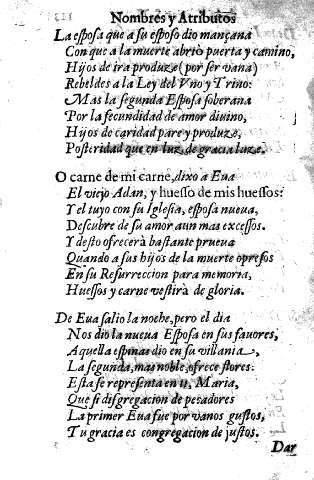 Nombres y Atributos
La esposa que a su esposo dio mançana
Con que a la muerte abrio puerta y camino,
Hijos de ira produze (por ser vana)
Rebeldes a la Ley del Vno y Trino:
Mas la segunda Esposa soberana
Por la fecundidad de amor diuino,
Hijos de caridad pare y produze,
Posteridad que en luz de gracia luze.
O carne de mi carne, dixo a Eua
El viejo Adan, y huesso de mis huessos:
Y el tuyo con su Iglesia, esposa nueua,
Descubre de su amor aun mas excessos.
Y desto ofrecerà bastante prueua
Quando a sus hijos de la muerte opresos
En su Resurreccion para memoria,
Huessos y carne vestirà de gloria.
De Eua salio la noche, pero el dia
Nos dio la nueua Esposa en sus fauores,
Aquella espinas dio en su villania,
La segunda, mas noble, ofrece flores:
Esta se representa en ti, Maria,
Que si disgregacion de pecadores
La primer Eua fue por vanos gustos,
Tu gracia es congregacion de justos.
Dar